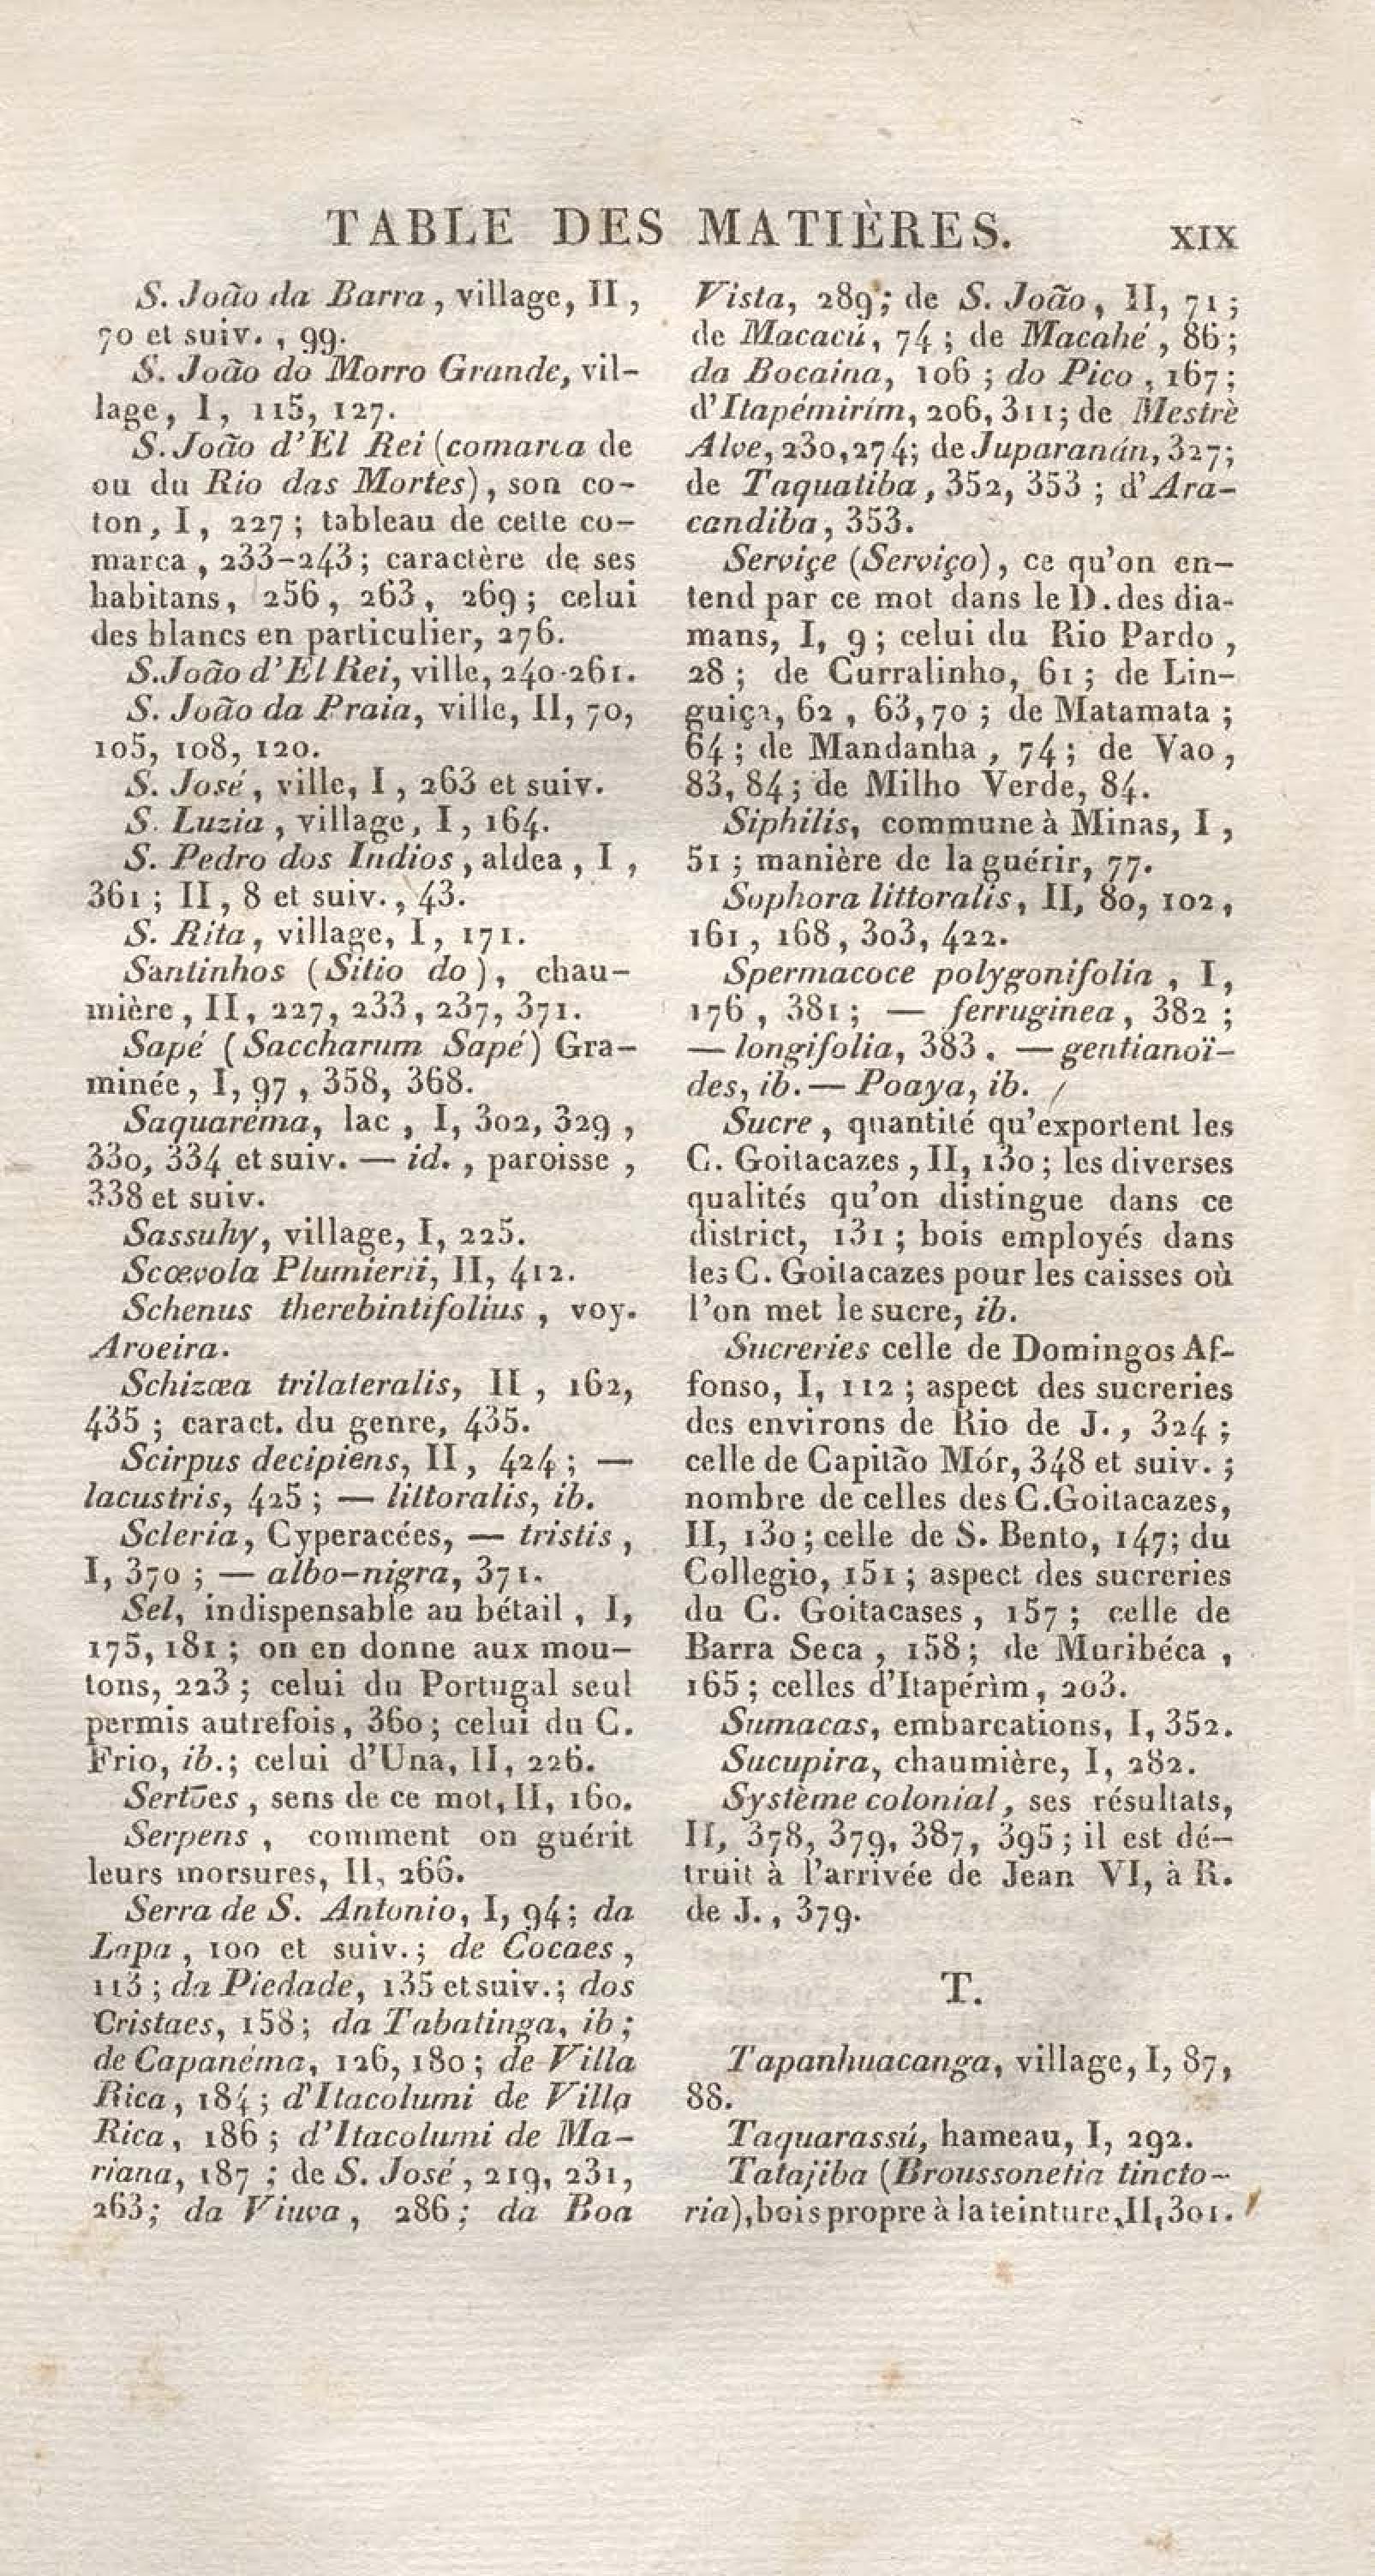 TABLE DES MATIÈRES. XIX
S. João da Barra, village, II,
70 et suiv., 99.
S. João do Morro Grande, vil-
lage, I, 115, 127.
S. João d'El Rei (comarca de
ou du Rio das Mortes), son co-
ton, I, 227; tableau de cette co-
marca, 233-243; caractère de ses
habitans, 256, 263, 269; celui
des blancs en particulier, 276.
S. João d'El Rei, ville, 240-261.
S. João da Praia, ville, II, 70,
105, 108, 120.
S. José, ville, I, 263 et suiv.
S. Luzia, village, I, 164.
S. Pedro dos Indios, aldea, I,
361; II, 8 et suiv., 43.
S. Rita, village, I, 171.
Santinhos (Sitio do), chau-
mière, II, 227, 233, 237, 371.
Sapé (Saccharum Sapé) Gra-
minée, I, 97, 358, 368.
Saquaréma, lac, I, 302, 329,
330, 334 et suiv. — id., paroisse,
338 et suiv.
Sassuhy, village, I, 225.
Scœvola Plumierii, II, 412.
Schenus therebintifolius, voy.
Aroeira.
Schizæa trilateralis, II, 162,
435; caract. du genre, 435.
Scirpus decipiens, II, 424; —
lacustris, 425; — littoralis, ib.
Scleria, Cyperacées, — tristis,
I, 370; — albo-nigra, 371.
Sel, indispensable au bétail, I,
175, 181; on en donne aux mou-
tons, 223; celui du Portugal seul
permis autrefois, 360; celui du C.
Frio, ib.; celui d'Una, II, 226.
Sertões, sens de ce mot, II, 160.
Serpens, comment on guérit
leurs morsures, II, 266.
Serra de S. Antonio, I, 94; da
Lapa, 100 et suiv.; de Cocaes,
113; da Piedade, 135 et suiv.; dos
Cristaes, 158; da Tabatinga, ib;
de Capanéma, 126, 180; de Villa
Rica, 184; d'Itacolumi de Villa
Rica, 186; d'Itacolumi de Ma-
riana, 187; de S. José, 219, 231,
263; da Viuva, 286; da Boa
Vista, 289; de S. João, II, 71;
de Macacú, 74; de Macahé, 86;
da Bocaina, 106; do Pico, 167;
d'Itapémirím, 206, 311; de Mestrè
Alve, 230, 274; de Juparanán, 327;
de Taquatiba, 352, 353; d'Ara-
candiba, 353.
Serviçe (Serviço), ce qu'on en-
tend par ce mot dans le D. des dia-
mans, I, 9; celui du Rio Pardo,
28; de Curralinho, 61; de Lin-
guiça, 62, 63, 70; de Matamata;
64; de Mandanha, 74; de Vao,
83, 84; de Milho Verde, 84.
Siphilis, commune à Minas, I,
51; manière de la guérir, 77.
Sophora littoralis, II, 80, 102,
161, 168, 303, 422.
Spermacoce polygonifolia, I,
176, 381; — ferruginea, 382;
— longifolia, 383. — gentianoï-
des, ib. — Poaya, ib.
Sucre, quantité qu'exportent les
C. Goitacazes, II, 130; les diverses
qualités qu'on distingue dans ce
district, 131; bois employés dans
les C. Goitacazes pour les caisses où
l'on met le sucre, ib.
Sucreries celle de Domingos Af-
fonso, I, 112; aspect des sucreries
des environs de Rio de J., 324;
celle de Capitão Mór, 348 et suiv.;
nombre de celles des C. Goitacazes,
II, 130; celle de S. Bento, 147; du
Collegio, 151; aspect des sucreries
du C. Goitacases, 157; celle de
Barra Seca, 158; de Muribéca,
165; celles d'Itapérìm, 203.
Sumacas, embarcations, I, 352.
Sucupira, chaumière, I, 282.
Système colonial, ses résultats,
II, 378, 379, 387, 395; il est dé-
truit à l'arrivée de Jean VI, à R.
de J., 379.
T.
Tapanhuacanga, village, I, 87,
88.
Taquarassú, hameau, I, 292.
Tatajiba (Broussonetia tincto-
ria), bois propre à la teinture, II, 301.